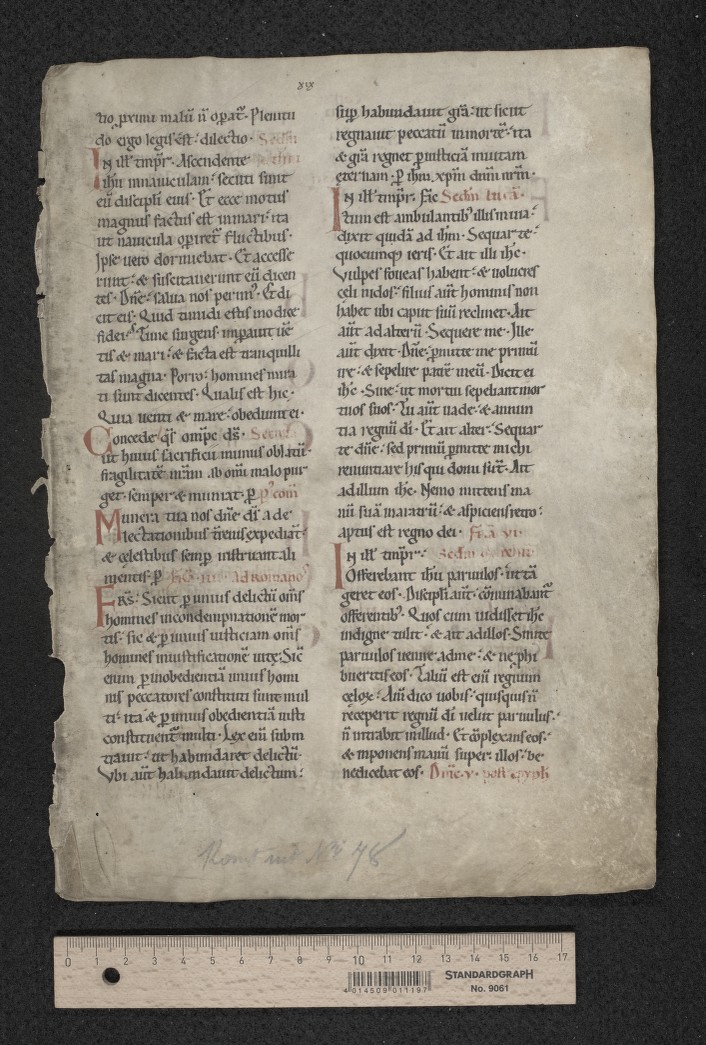 xix
tio pximi malū n̄ opat᷑. Plenitu
do ergo legis est: dilectio. Scdm
In ill̄ tmpr̄. Ascendente
ihū innauiculam: secuti sunt
eū discipli eius. Et ecce motus
magnus factus est inmari: ita
ut nauicula opiret᷑ fluctibus.
Ipse uero dormiebat. Et accesse
runt: & suscitauerunt eū dicen
tes. Dn̄e: salua nos perim᷒. Et di
cit eis. Quid timidi estis modice
fidei? Tunc surgens: impauit uē
tis & mari: & facta est tranquilli
tas magna. Porro: homines mira
ti sunt dicentes. Qualis est hic.
Quia uenti & mare: obediunt ei.
Concede qs̄ omp̄c ds̄. Secret̄
ut huius sacrificii munus oblatū:
fragilitatē nr̄am ab om̄i malo pur
get. semper & muniat. p̲ p᷒ com̄
Munera tua nos dn̄e ds̄ a de
lectationibus t̄renis expediant᷑
& celestibus semp instruant ali
mentis. p̲ ad Romanos
Frs̄: Sicut p unius delictū om̄s
homines incondempnationē mor
tis: sic & p unius iusticiam om̄s
homines iniustificationē uitę: Sic̄
enim p inobedientiā unius homi
nis peccatores constituti sunt mul
ti: ita & p unius obedientiā iusti
constituent᷑ multi. Lex eni subin
trauit: ut habundaret delictū.
Vbi aūt habundauit delictum:
sup habundauit gr̄a: ut sicut
regnauit peccatū inmortē: ita
& gr̄a regnet p iusticiā inuitam
ęternam. p̲ ihm̄. xpm̄ dnm̄ nrm̄.
In ill̄ tmpr̄. Fac̄ Scdm lucā.
tum est ambulantib᷒ illis inuia:
dixit quidā ad ihm̄. Sequar te:
quocumq; ieris. Et ait illi ihc̄.
Vulpes foueas habent: & uolucres
cęli nidos: filius aūt hominis non
habet ubi caput suū reclinet. Ait
aūt ad alterū. Sequere me. Ille
aūt dixit. Dn̄e: pmitte me primū
ire: & sepelire patrē meū. Dicit ei
ihc̄. Sine: ut mortui sepeliant mor
tuos suos. Tu aūt uade: & annun
tia regnū di. Et ait alter. Sequar
te dn̄e: sed primū pmitte michi
renuntiare his qui domi sūt. Ait
ad illum ihc̄. Nemo mittens ma
nū suā in aratrū: & aspiciens retro:
aptus est regno dei. Fr̄a vi
In ill̄ tmpr̄:
Offerebant ihū paruulos: ut tā
geret eos. Discipli aūt. cōminabant᷑
offerentib᷒. Quos cum uidisset ihc̄
indigne tulit: & ait ad illos. Sinite
paruulos uenire adme: & ne phi
bueritis eos. Taliū est eni regnum
cęlox̄. Am̄ dico uobis: quisquis n̄
receperit regnū di uelut paruulus:
n̄ intrabit inillud. Et cōplexans eos:
& imponens manū super illos: be
nedicebat eos. Dn̄c. v. post epyph
Nr 78
0 1 2 3 4 5 6 7 8 9 10 11 12 13 14 15 16 17
4 014509 011197
STANDARDGRAPH
No. 9061